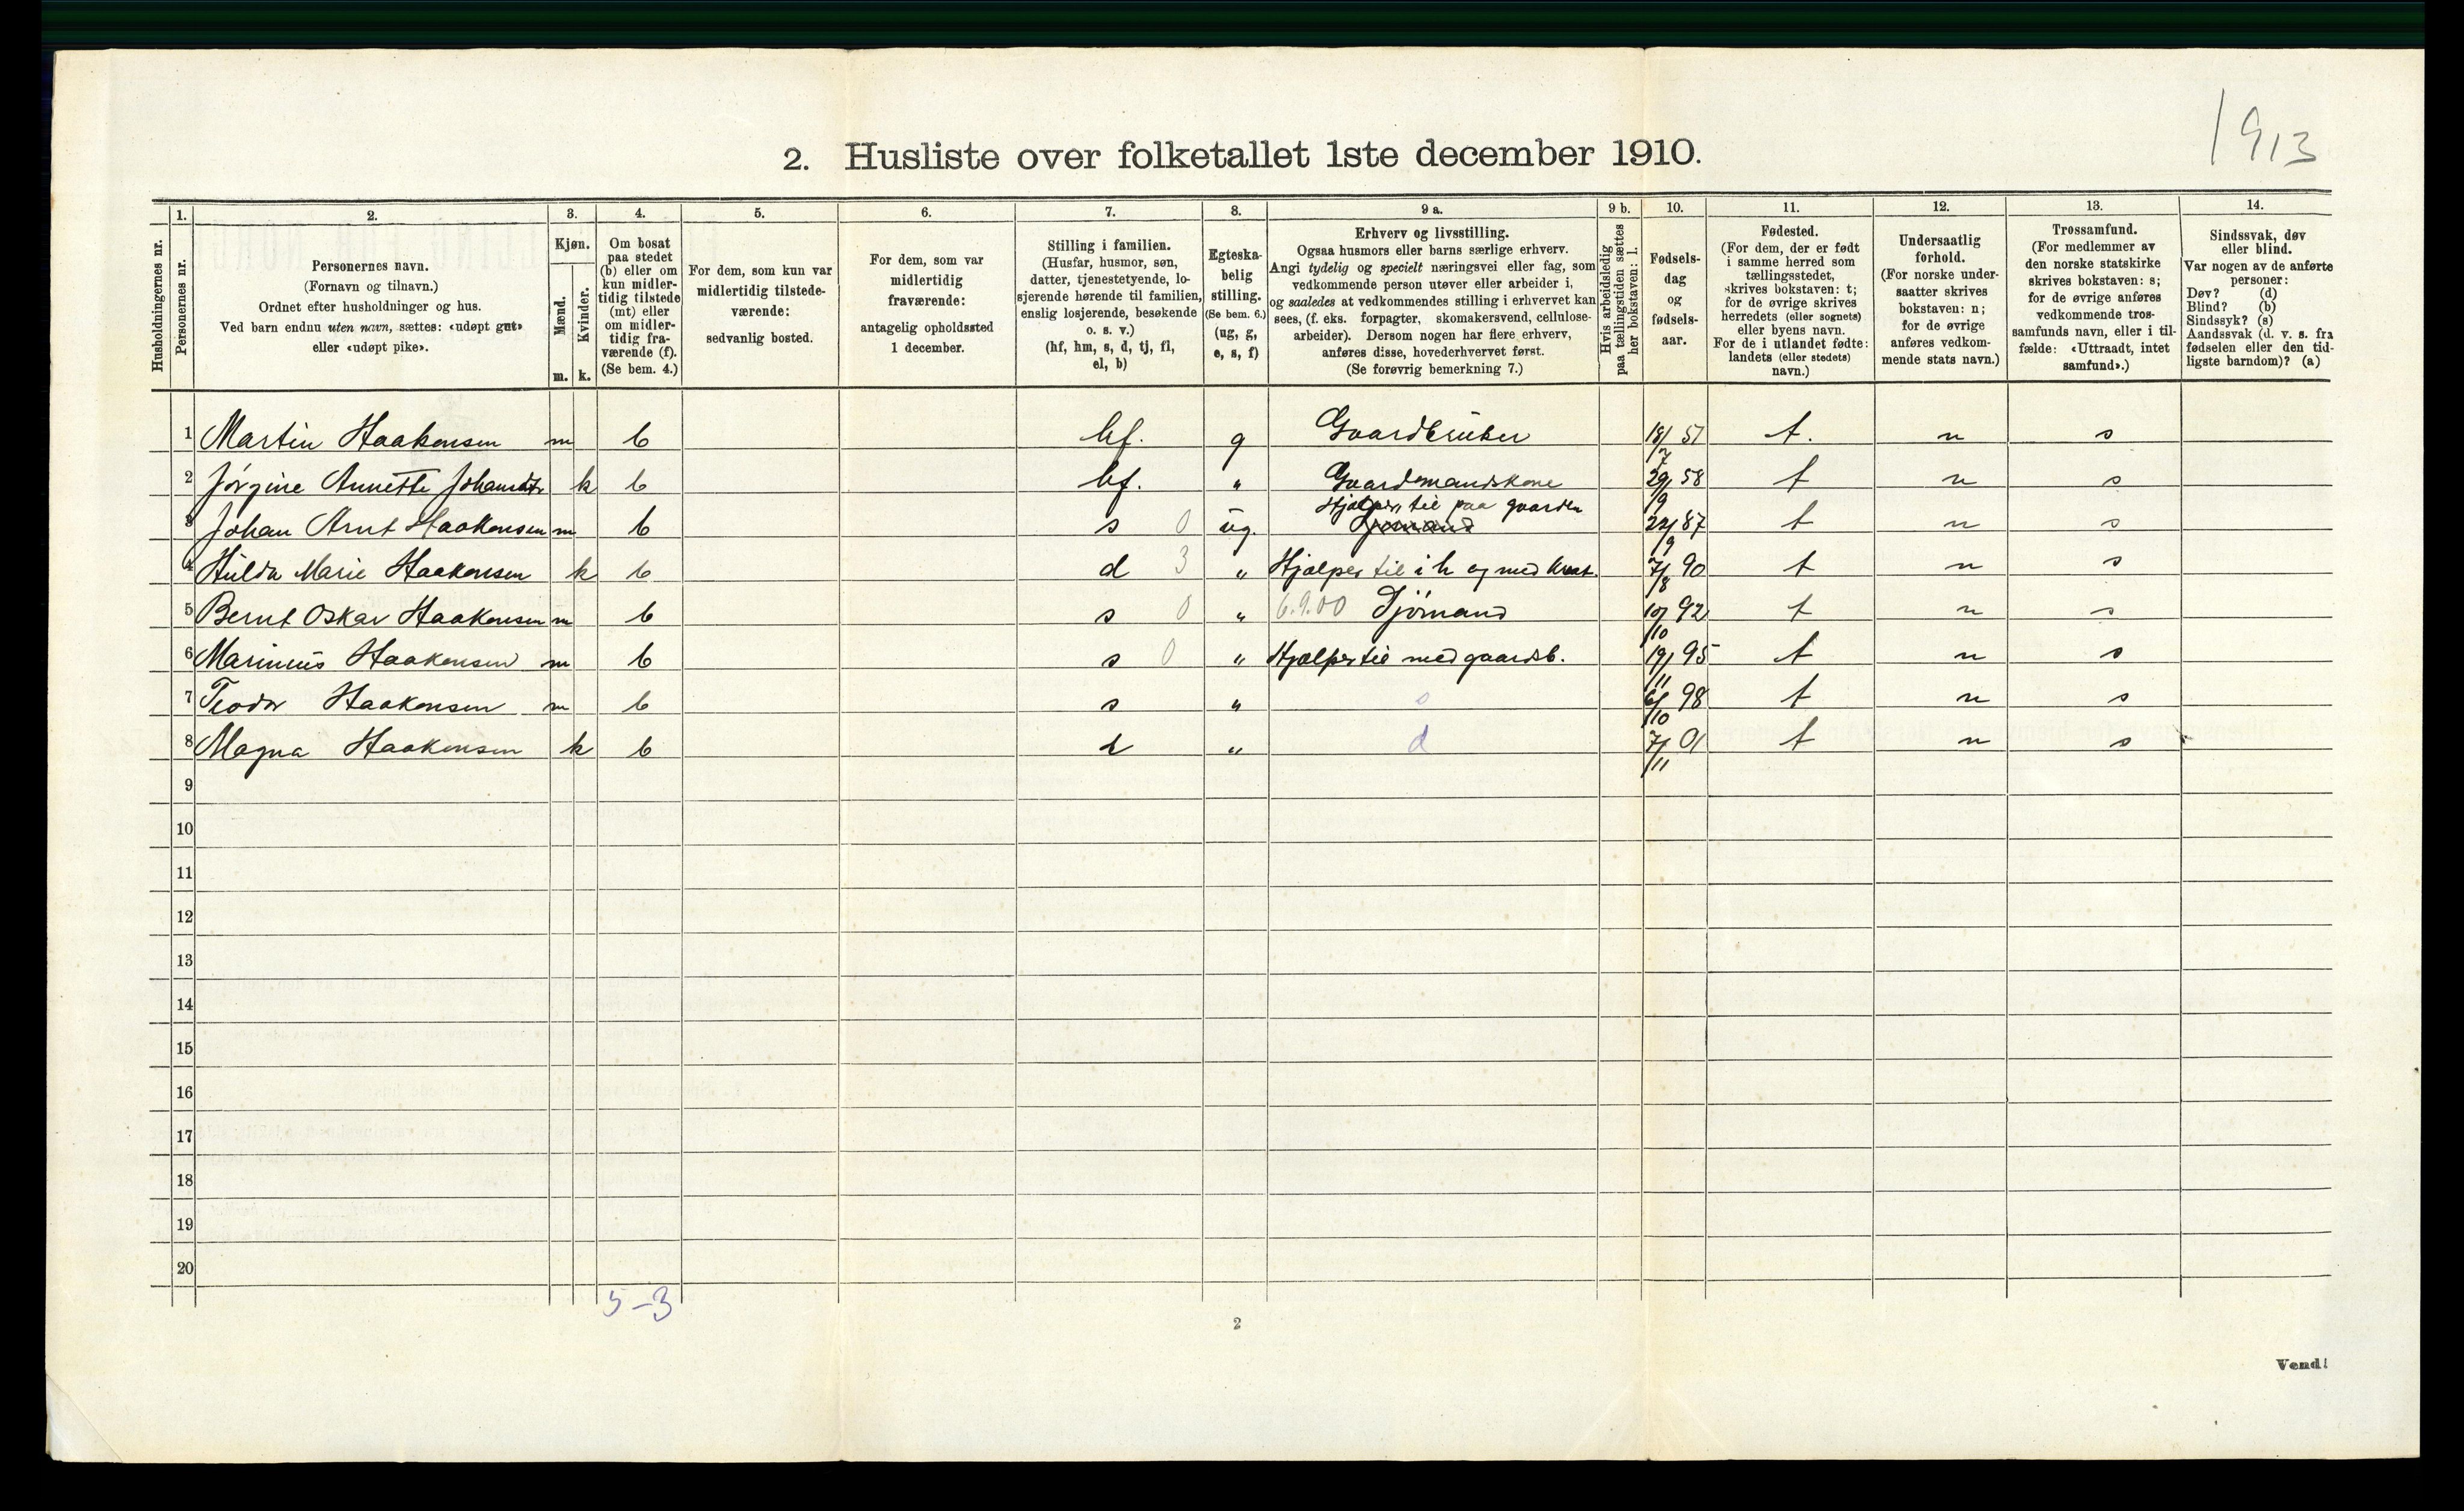 1913
2. Husliste over folketallet 1ste december 1910.
Husholdningernes nr.
1.
Personernes nr.
2.
Personernes navn.
(Fornavn og tilnavn.)
Ordnet efter husholdninger og hus.
Ved barn endnu uten navn, sættes: «udøpt gut»
eller «udøpt pike».
3.
Kjøn.
Mænd.
Kvinder.
m. k.
4.
Om bosat
paa stedet
(b) eller om
kun midler-
tidig tilstede
(mt) eller
om midler-
tidig fra-
værende (f).
(Se bem. 4.)
5.
For dem, som kun var
midlertidig tilstede-
værende:
sedvanlig bosted.
6.
For dem, som var
midlertidig
fraværende:
antagelig opholdssted
1 december.
7.
Stilling i familien.
(Husfar, husmor, søn,
datter, tjenestetyende, lo-
sjerende hørende til familien,
enslig losjerende, besøkende
o. s. v.)
(hf, hm, s, d, tj, fl,
el, b)
8.
Egteska-
belig
stilling.
(Se bem. 6.)
(ug, g,
e, s, f)
9 a.
Erhverv og livsstilling.
Ogsaa husmors eller barns særlige erhverv.
Angi tydelig og specielt næringsvei eller fag, som
vedkommende person utøver eller arbeider i,
og saaledes at vedkommendes stilling i erhvervet kan
sees, (f. eks. forpagter, skomakersvend, cellulose-
arbeider). Dersom nogen har flere erhverv,
anføres disse, hovederhvervet først.
(Se forøvrig bemerkning 7.)
9 b.
Hvis arbeidsledig
paa tællingstiden sættes
her bokstaven: l.
10.
Fødsels-
dag
og
fødsels-
aar.
11.
Fødested.
(For dem, der er født
i samme herred som
tællingsstedet,
skrives bokstaven: t;
for de øvrige skrives
herredets (eller sognets)
eller byens navn.
For de i utlandet fødte:
landets (eller stedets)
navn.)
12.
Undersaatlig
forhold.
(For norske under-
saatter skrives
bokstaven: n;
for de øvrige
anføres vedkom-
mende stats navn.)
13.
Trossamfund.
(For medlemmer av
den norske statskirke
skrives bokstaven: s;
for de øvrige anføres
vedkommende tros-
samfunds navn, eller i til-
fælde: «Uttraadt, intet
samfund».)
14.
Sindssvak, døv
eller blind.
Var nogen av de anførte
personer:
Døv? (d)
Blind? (b)
Sindssyk? (s)
Aandssvak (d. v. s. fra
fødselen eller den tid-
ligste barndom)? (a)
1 Martin Haakensen m b hf. g Gaardbruker 18/7 57 t. n s
2 Jørgine Annette Johansdtr k b hf. " Gaardmandskone 29/9 58 t n s
3 Johan Arnt Haakensen m b s 0 ug. Hjælper til paa gaarden Sjømand 22/9 87 t n s
4 Hulda Marie Haakensen k b d 3 " Hjælper til i h og med kreat. 7/8 90 t n s
5 Bernt Oskar Haakensen m b s 0 " 6.9.00 Sjömand 10/10 92 t n s
6 Marinius Haakensen m b s 0 " Hjælper til med gaardsb. 19/11 95 t n s
7 Teodor Haakensen m b s " s 6/10 98 t n s
8 Magna Haakensen k b d " d 7/11 01 t n s
9
10
11
12
13
14
15
16
17
18
19
20
5-3
2
Vend!